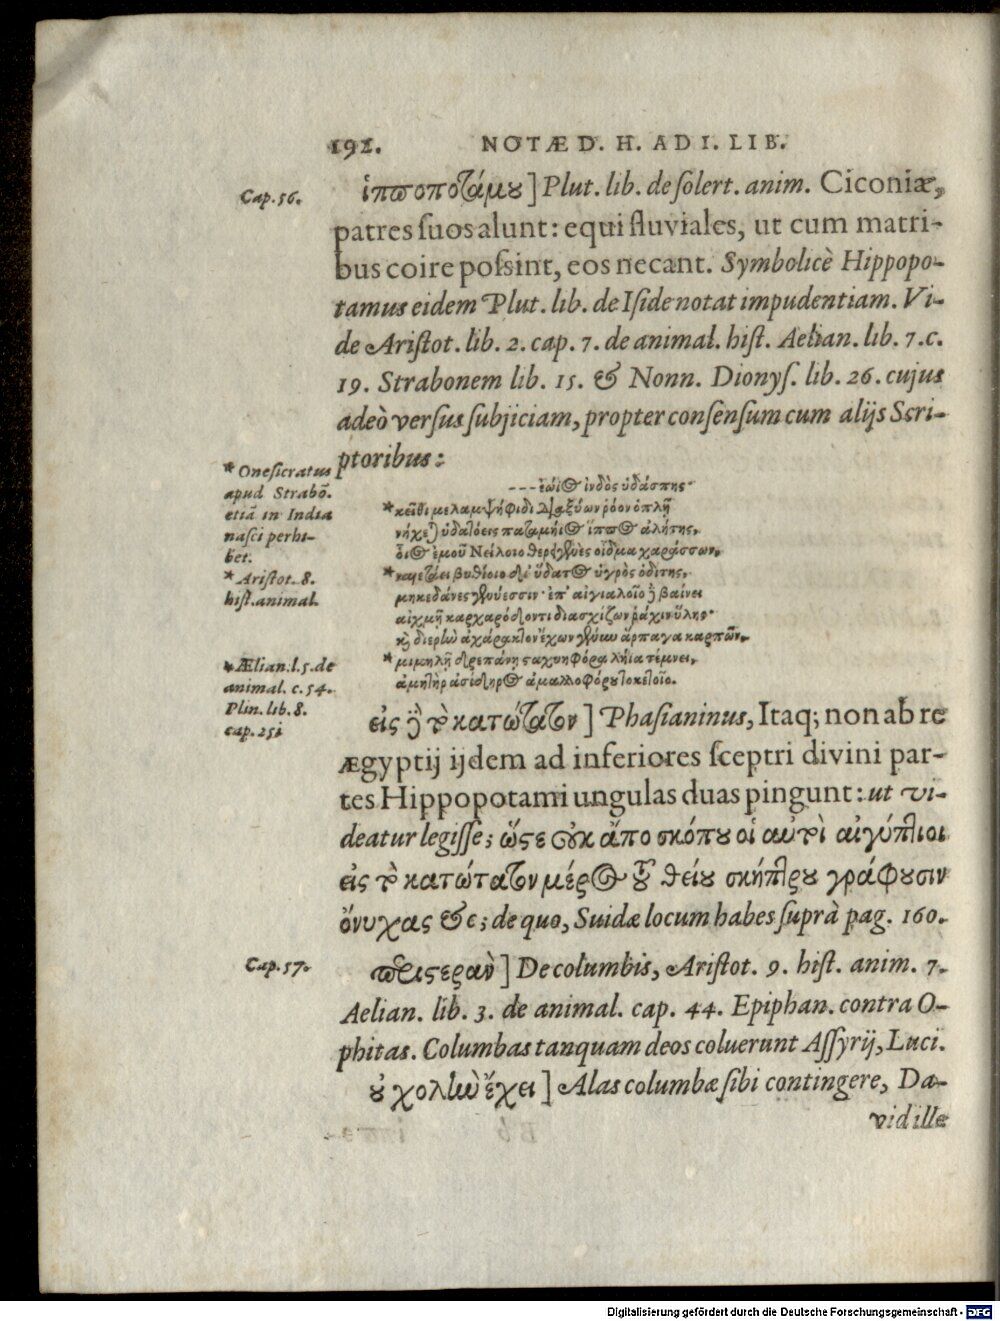 192. NOTÆ D. H. AD I. LIB.
Cap. 56.
ἱπποποτάμου] Plut. lib. de ſolert. anim. Ciconiæ,
patres ſuos alunt: equi fluviales, ut cum matri-
bus coire poſsint, eos necant. Symbolicè Hippopo-
tamus eidem Plut. lib. de Iſide notat impudentiam. Vi-
de Ariſtot. lib. 2. cap. 7. de animal. hiſt. Aelian. lib. 7. c.
19. Strabonem lib. 15. & Nonn. Dionyſ. lib. 26. cujus
adeò verſus ſubjiciam, propter conſenſum cum alijs Scri-
ptoribus:
* Oneſicratus
apud Strabõ.
etiã in India
naſci perhi-
bet.
* Ariſtot. 8.
hiſt. animal.
* Ælian. l. 5. de
animal. c. 54.
Plin. lib. 8.
cap. 25i
--- ἑώιος ἰνδὸς ὑδάσπης·
* κεῖθι μελαμψήφιδι ῥόον ὁπλῇ
νήχε) ὑδατόεις ποταμήιος ἵππος ἀλήτης,
οἷος ἐμοῦ Νείλοιο θερειγενὲς οἶδμα χαράσσων,
* ναιετάει βυθίοιο δι' ὕδατος ὑγρὸς ὁδίτης,
μηκεδάνες γενύεσσιν· ἐπ' αἰγιαλοῖο ἢ βαίνει
αἰχμῇ καρχαρόδοντι διασχίζων ῥάχιν ὕλης·
καὶ διερὴν ἀχάρακτον ἔχων γένυν ἅρπαγα καρπῶν,
* μιμηλῇ δρεπάνῃ σαχυηφόρα λήϊα τέμνει,
ἀμητὴρ ἀσίδηρος ἀμαλλοφόρου τοκετοῖο.
εἰς ἢ τὸ κατώτατον] Phaſianinus, Itaq; non ab re
Ægyptij ijdem ad inferiores ſceptri divini par-
tes Hippopotami ungulas duas pingunt: ut vi-
deatur legiſſe; ὥςε οὐκ ἄπο σκόπου οἱ αὐτοὶ αἰγύπτιοι
εἰς τὸ κατώτατον μέρος τοῦ θείου σκήπτρου γράφουσιν
ὄνυχας &c; de quo, Suidæ locum habes ſuprà pag. 160.
Cap. 57.
περιςερὰν] De columbis, Ariſtot. 9. hiſt. anim. 7.
Aelian. lib. 3. de animal. cap. 44. Epiphan. contra O-
phitas. Columbas tanquam deos coluerunt Aſſyrij, Luci.
οὐ χολὴν ἔχει] Alas columbæ ſibi contingere, Da-
vid ille
Digitalisierung gefördert durch die Deutsche Forschungsgemeinschaft - DFG